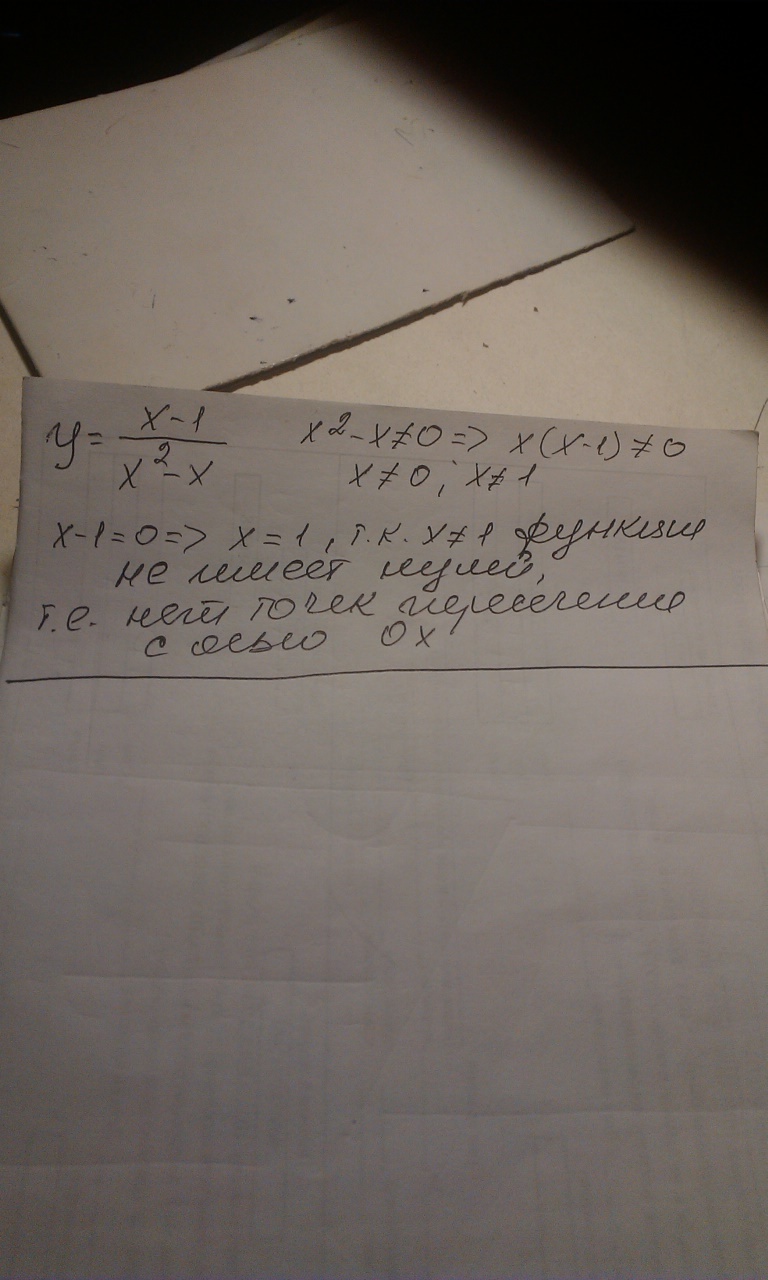 y = (x-1)/(x²-x) x²-x≠0 => x(x-1)≠0
x≠0; x≠1
x-1=0 => x=1, т.к. x≠1 функция
не имеет нулей,
т.е. нет точек пересечения
с осью Ox